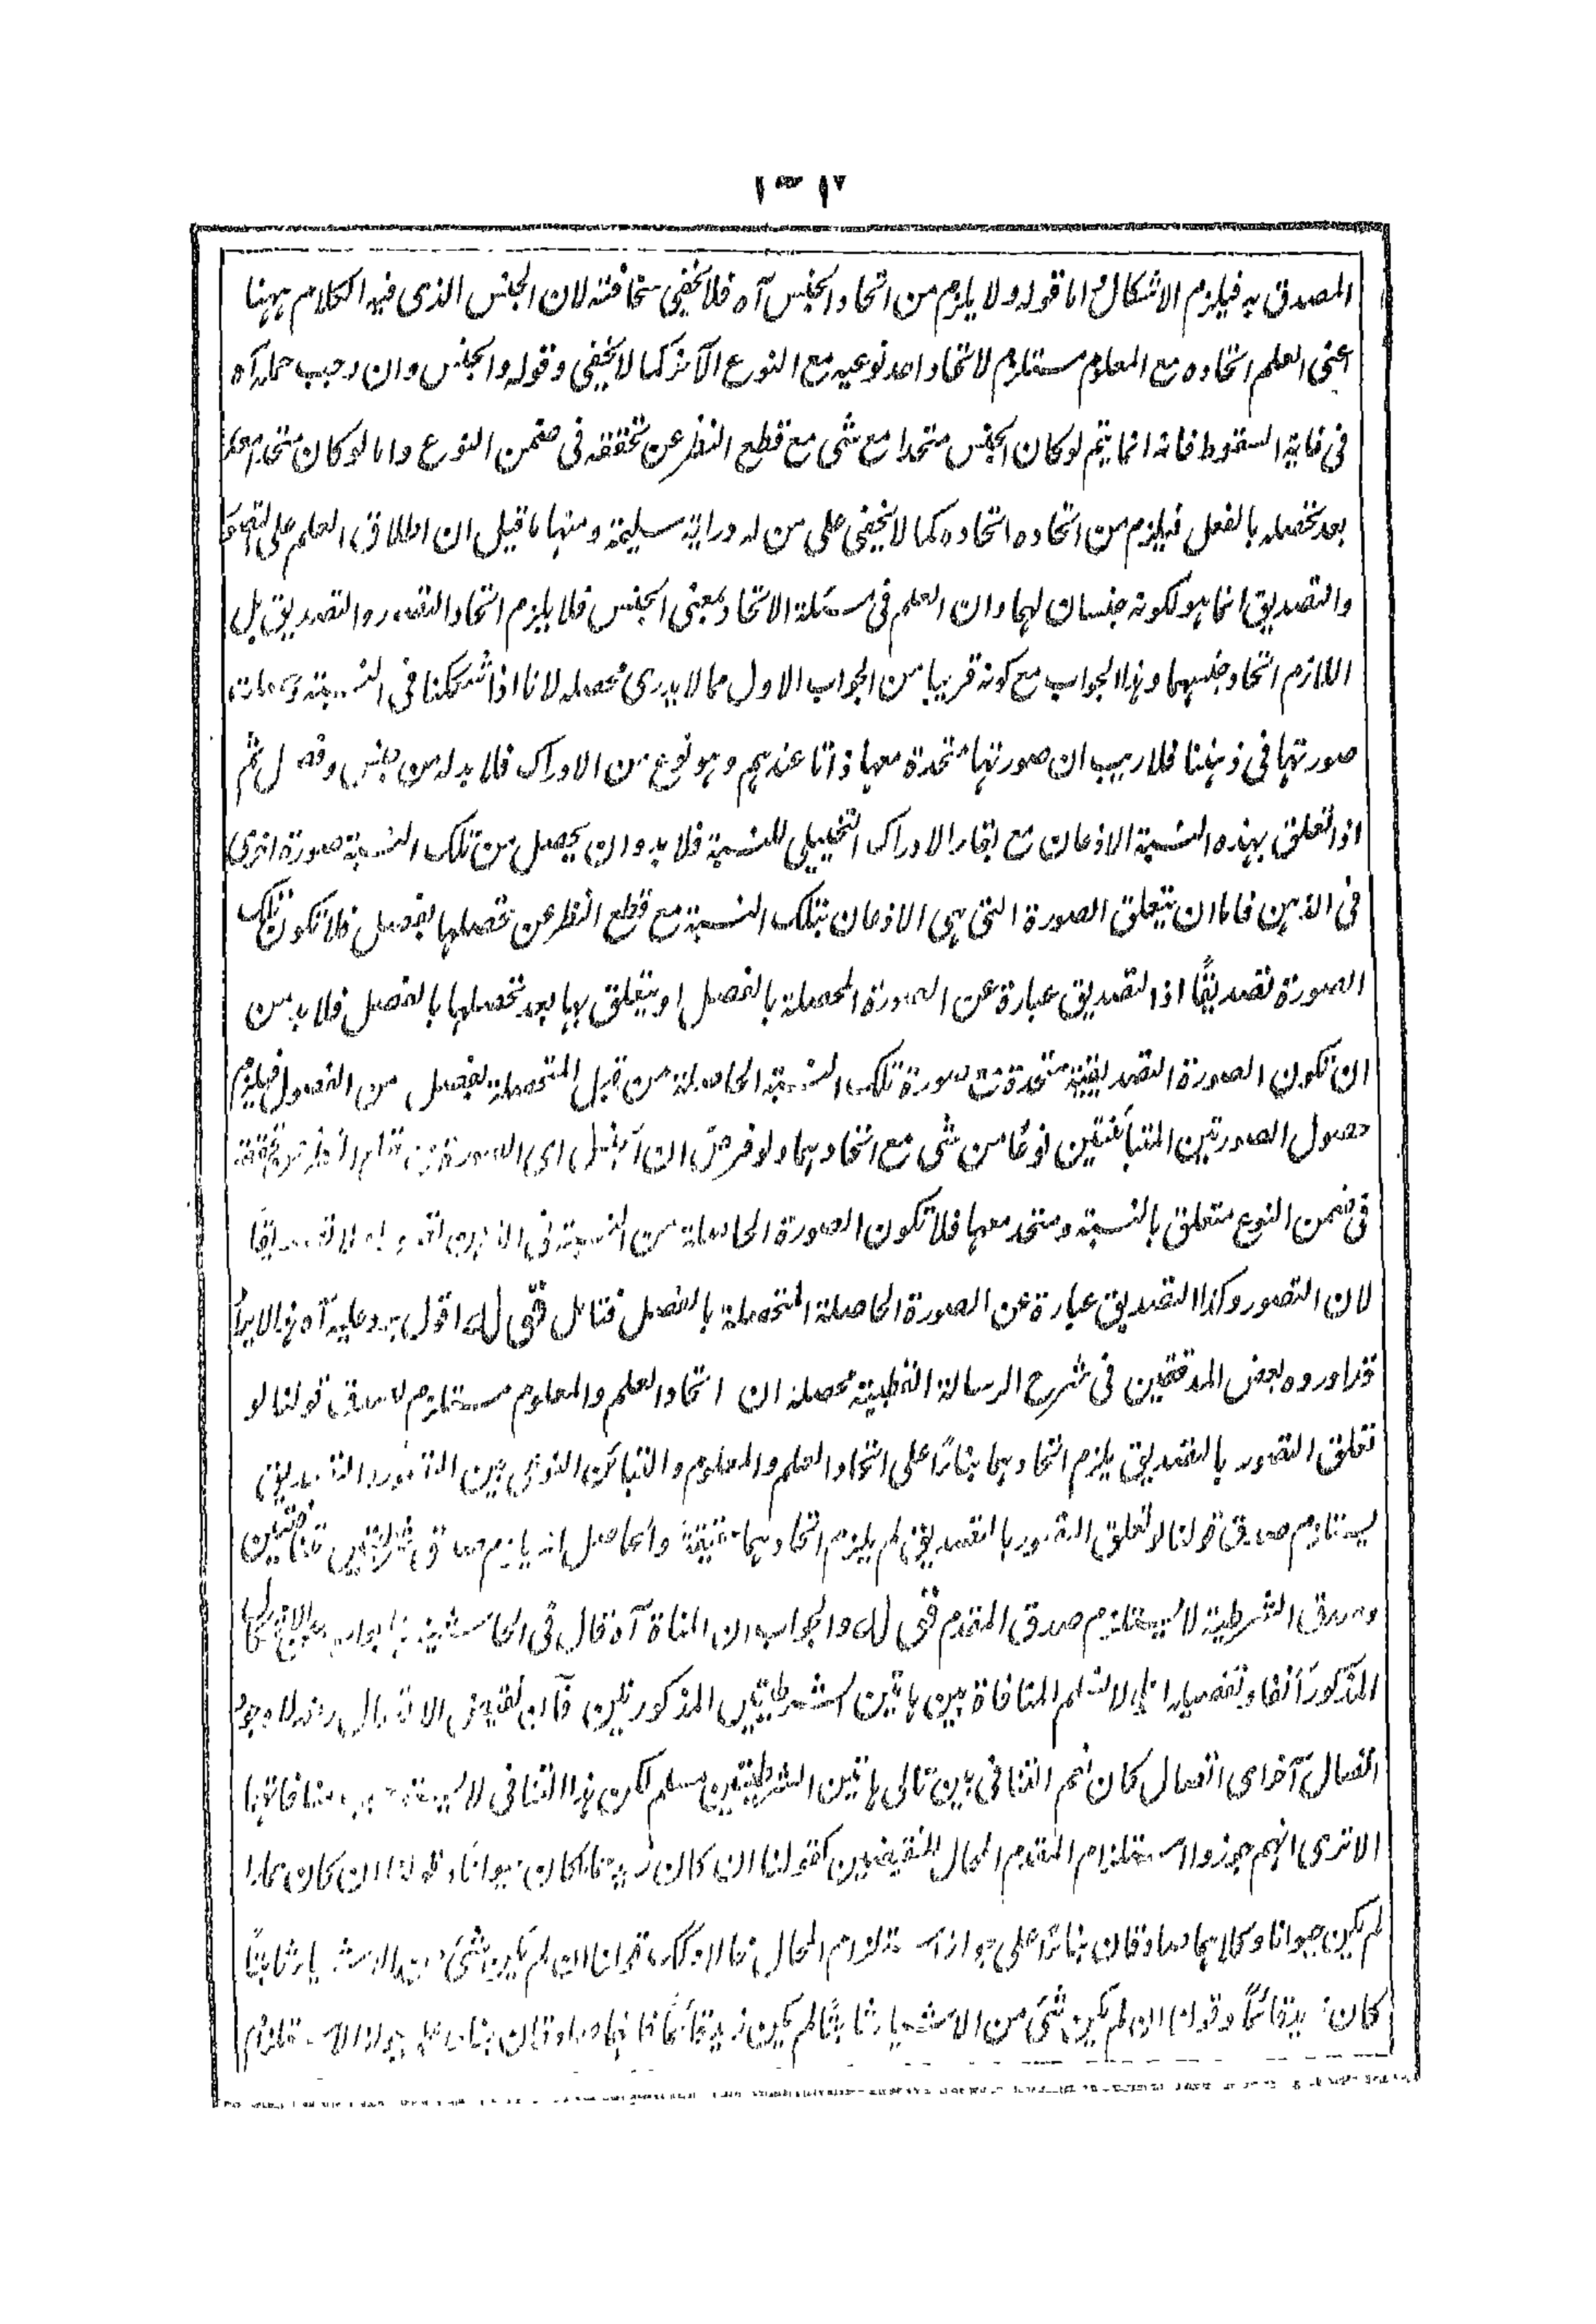 المصدق به فيلزم الاشكال واما قوله ولا يلزم من اتحاد الجنس آه فلا يخفى سخافته لان الجنس الذى فيه الكلام ههنا
اعنى العلم اتحاده مع المعلوم مستلزم لاتحاد احد نوعيه مع النوع الآخر كما لا يخفى وقوله والجنس وان وجب حمله آه
فى غاية السقوط فانه انما يتم لو كان الجنس متحدا مع شى مع قطع النظر عن تحققه فى ضمن النوع واما لو كان متحدا معه
بعد تحصله بالفعل فيلزم من اتحاده اتحاده كما لا يخفى على من له دراية سليمة ومنها ما قيل ان اطلاق العلم على التصور
والتصديق انما هو لكونه جنسان لهما وان العلم فى مسئلة الاتحاد بمعنى الجنس فلا يلزم اتحاد التصور والتصديق بل
اللازم اتحاد جنسهما وهذا الجواب مع كونه قريبا من الجواب الاول مما لا يدرى محصله لانا اذا شككنا فى النسبة وحصلت
صورتها فى ذهننا فلا ريب ان صورتها متحدة معها ذاتا عندهم وهو نوع من الادراك فلا بد له من جنس وفصل ثم
اذا تعلق بهذه النسبة الاذعان مع بقاء الادراك التخييلى للنسبة فلا بد وان يحصل من تلك النسبة صورة اخرى
فى الذهن فاما ان يتعلق الصورة التى هى الاذعان بتلك النسبة مع قطع النظر عن تحصلها بفصل فلا تكون تلك
الصورة تصديقًا اذ التصديق عبارة عن الصورة المحصلة بالفصل او يتعلق بها بعد تحصلها بالفصل فلا بد من
ان تكون الصورة التصديقية متحدة مع صورة تلك النسبة الحاصلة من قبل المتحصلة بفصل من الفصول فيلزم
حصول الصورتين المتبائنتين نوعًا من شى مع اتحادهما ولو فرض ان الجنس اى الصورة مع قطع النظر عن تحققه
فى ضمن النوع متعلق بالنسبة ومتحد معها فلا تكون الصورة الحاصلة من النسبة فى الذهن تصورا ولا تصديقًا
لان التصور وكذا التصديق عبارة عن الصورة الحاصلة المتحصلة بالفصل فتامل قوله اقول يرد عليه آه هذا الايراد
قد اورده بعض المدققين فى شرح الرسالة القطبية محصله ان اتحاد العلم والمعلوم مستلزم لصدق قولنا لو
تعلق التصور بالتصديق يلزم اتحادهما بناءً على اتحاد العلم والمعلوم والتبائن النوعى بين التصور والتصديق
يستلزم صدق قولنا لو تعلق التصور بالتصديق لم يلزم اتحادهما حقيقة والحاصل انه يلزم صدق شرطيتين متنافيتين
وصدق الشرطية لا يستلزم صدق المقدم قوله والجواب ان المنافاة آه قال فى الحاشية هذا جواب
المذكور آنفا وتفصيله انا لا نسلم المنافاة بين هاتين الشرطيتين المذكورتين فان نقيض الاتصال رفعه لا وجود
اتصال آخر اى اتصال كان نعم التنافى بين تالى هاتين الشرطيتين مسلم لكن هذا التنافى لا يستلزم منافاتهما
الا ترى انهم جوزوا استلزام المقدم المحال للنقيضين كقولنا ان كان زيد حمارا كان حيوانا وقولنا ان كان حمارا
لم يكن حيوانا وكلاهما صادقان بناءً على جواز استلزام المحال محالا وكذا قولنا ان لم يكن شئ من الاشياء ثابتًا
كان زيد قائمًا وقولنا ان لم يكن شئ من الاشياء ثابتًا لم يكن زيد قائمًا فانهما صادقان بناء على جواز الاستلزام